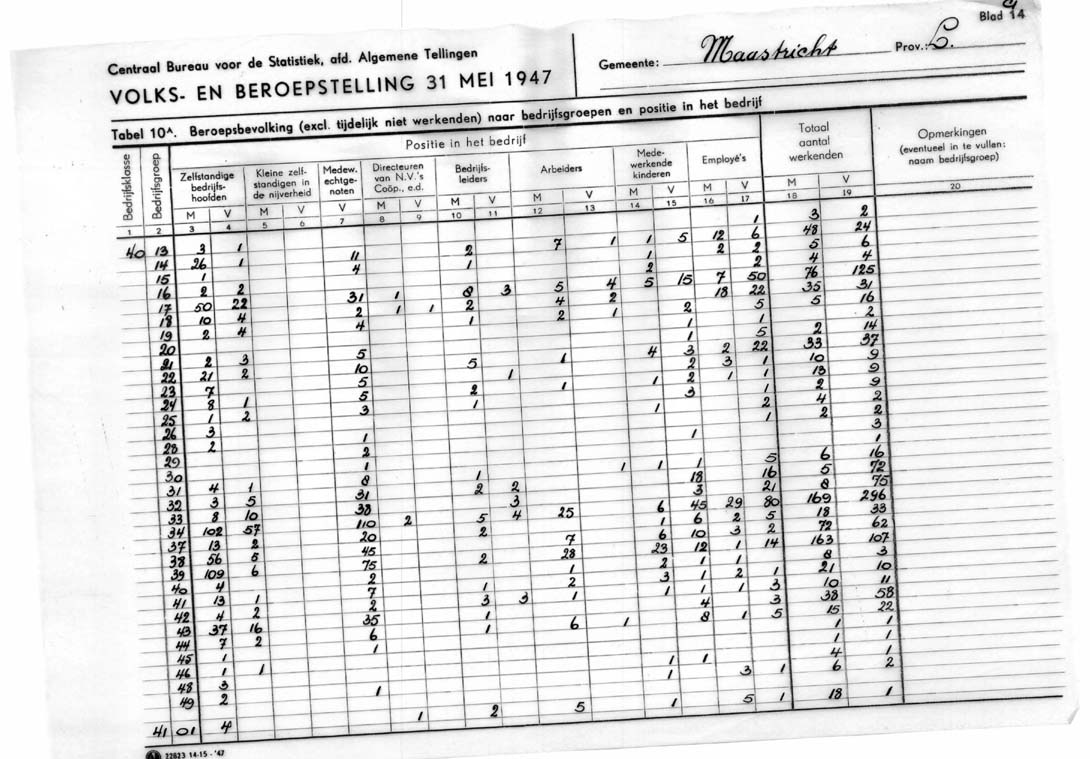 Blad 14
Centraal Bureau voor de Statistiek, afd. Algemene Tellingen
VOLKS- EN BEROEPSTELLING 31 MEI 1947
Gemeente: Maastricht Prov.: L.
Tabel 10A. Beroepsbevolking (excl. tijdelijk niet werkenden) naar bedrijfsgroepen en positie in het bedrijf
Bedrijfsklasse
Bedrijfsgroep
Positie in het bedrijf
Zelfstandige bedrijfs-hoofden
Kleine zelf-standigen in de nijverheid
Medew. echtge-noten
Directeuren van N.V.'s Coöp., e.d.
Bedrijfs-leiders
Arbeiders
Mede-werkende kinderen
Employé's
Totaal aantal werkenden
Opmerkingen (eventueel in te vullen: naam bedrijfsgroep)
M V M V V M V M V M V M V M V M V
1 2 3 4 5 6 7 8 9 10 11 12 13 14 15 16 17 18 19 20
40 13 3 1 1 3 2
14 26 1 11 2 7 1 1 5 12 6 48 24
15 1 4 1 1 2 2 5 6
16 2 2 2 2 4 4
17 50 22 31 1 8 3 5 4 5 15 7 50 76 125
18 10 4 2 1 1 2 4 2 18 22 35 31
19 2 4 4 1 2 1 2 5 5 16
20 1 1 2
21 2 3 5 1 5 2 14
22 21 2 10 5 1 4 3 2 22 33 37
23 7 5 1 2 3 1 10 9
24 8 1 5 2 1 1 2 1 1 13 9
25 1 2 3 1 3 1 2 9
26 3 1 2 4 2
28 2 1 1 2 2
29 2 1 3
30 1 1
31 4 1 8 1 1 1 1 5 6 16
32 3 5 31 2 2 18 16 5 72
33 8 10 38 3 3 21 8 75
34 102 57 110 2 5 4 25 6 45 29 80 169 296
37 13 2 20 2 1 6 2 5 18 33
38 56 5 45 7 6 10 3 2 72 62
39 109 6 75 2 28 23 12 1 14 163 107
40 4 2 1 2 1 1 8 3
41 13 1 7 1 2 3 1 2 1 21 10
42 4 2 2 3 3 1 1 1 1 3 10 11
43 37 16 35 1 4 3 38 58
44 7 2 6 1 6 1 8 1 5 15 22
45 1 1 1 1
46 1 1 1 1
48 3 1 1 4 1
49 2 1 1 3 1 6 2
41 01 4 1 2 5 1 5 1 18 1
22623 14-15 - '47